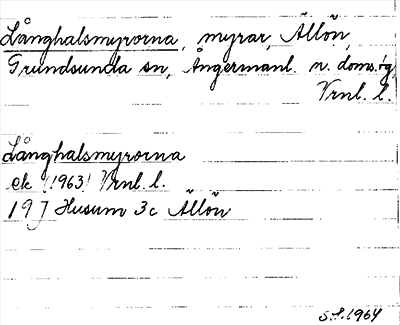 Långhalsmyrorna, myrar, Ällön,
Grundsunda sn, Ångermanl. n. doms:g,
Vrnl. l.
Långhalsmyrorna
ek (1963) Vrnl. l.
19 J Husum 3c Ällön
S.S. 1964